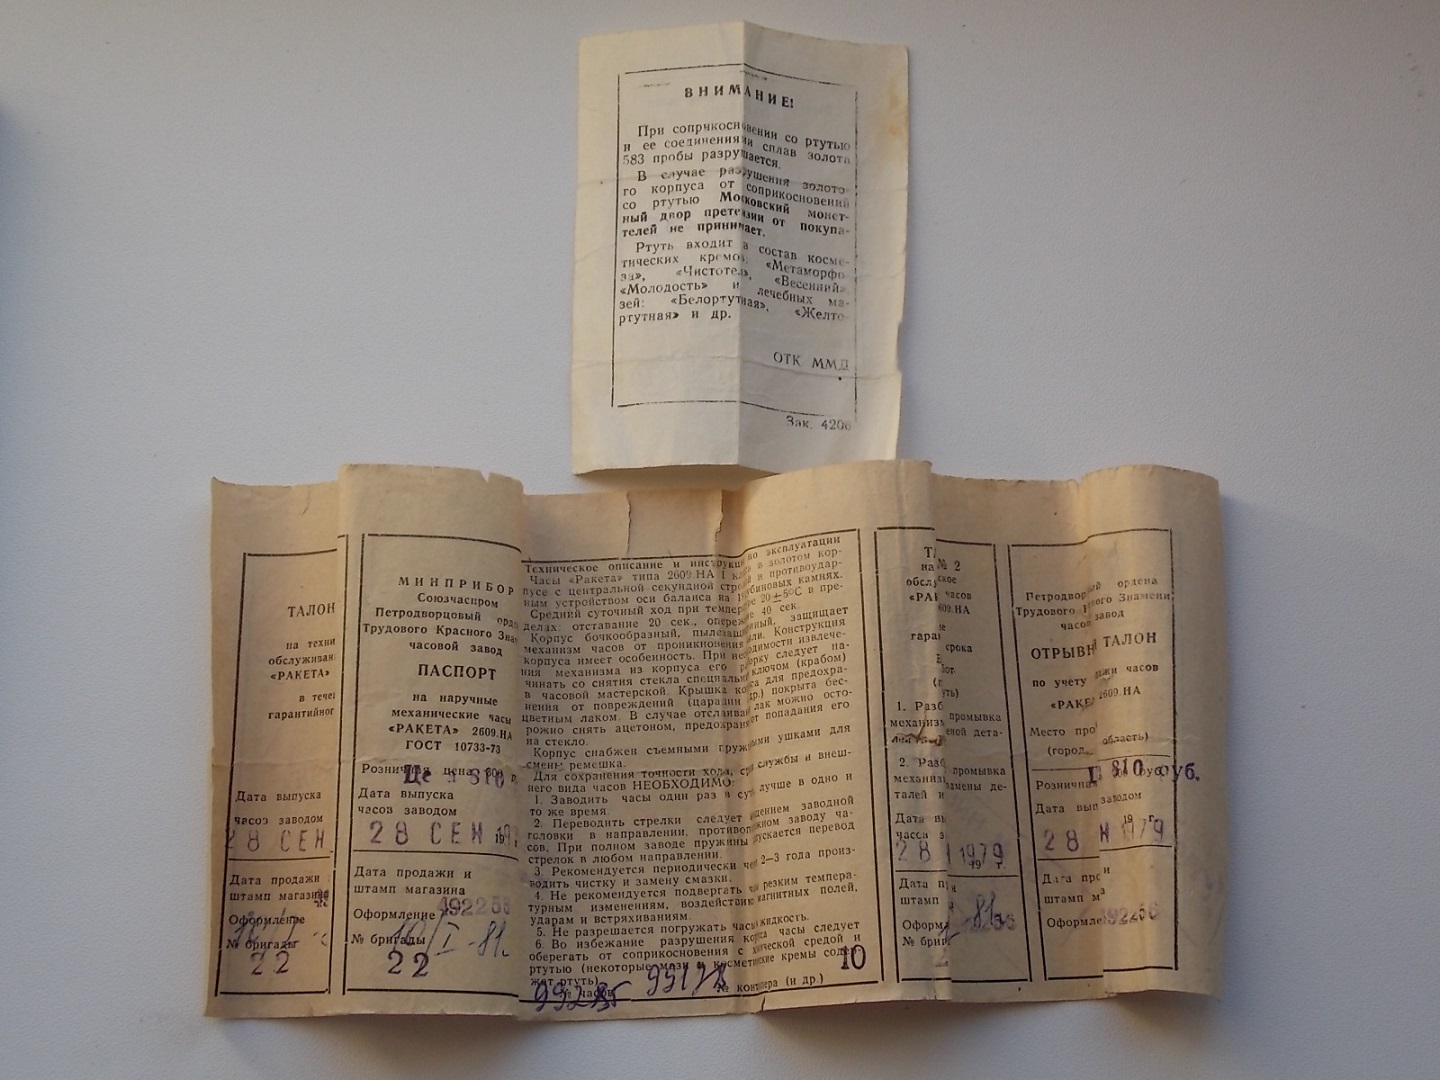 ВНИМАНИЕ!
При соприкосновении со ртутью
и ее соединениями сплав золота
583 пробы разрушается.
В случае разрушения золото-
го корпуса от соприкосновений
со ртутью Московский монет-
ный двор претензии от покупа-
телей не принимает.
Ртуть входит в состав косме-
тических кремов: «Метаморфо
за», «Чистотел», «Весенний»,
«Молодость» и лечебных ма-
зей: «Белортутная», «Желто-
ртутная» и др.
ОТК ММД
Зак. 4206
ТАЛОН
на техни
обслуживан
«РАКЕТА»
в течен
гарантийног
Дата выпуска
часов заводом
28 СЕН
Дата продажи
штамп магазина
Оформление
№ бригады
22
МИНПРИБОР
Союзчаспром
Петродворцовый орд
Трудового Красного Зна
часовой завод
ПАСПОРТ
на наручные
механические часы
«РАКЕТА» 2609.НА
ГОСТ 10733-73
Розничная цена
Дата выпуска
часов заводом
28 СЕН 19
Дата продажи и
штамп магазина
Оформление
№ бригады
22
Техническое описание и инструкц по эксплуатации
Часы «Ракета» типа 2609.НА I кла в золотом кор-
пусе с центральной секундной стре и противоудар-
ным устройством оси баланса на 1 рубиновых камнях.
Средний суточный ход при темпер 20±5°С в пре-
делах: отставание 20 сек., опереж 40 сек.
Корпус бочкообразный, пылезащ нный, защищает
механизм часов от проникновени ли. Конструкция
корпуса имеет особенность. При не димости извлече-
ния механизма из корпуса его р орку следует на-
чинать со снятия стекла специаль ключом (крабом)
в часовой мастерской. Крышка ко са для предохра-
нения от повреждений (царапин др.) покрыта бес-
цветным лаком. В случае отслаивай лак можно осто-
рожно снять ацетоном, предохран от попадания его
на стекло.
Корпус снабжен съемными пруж ными ушками для
смены ремешка.
Для сохранения точности хода, ср службы и внеш-
него вида часов НЕОБХОДИМО:
1. Заводить часы один раз в сут лучше в одно и
то же время.
2. Переводить стрелки следует щением заводной
головки в направлении, противоп жном заводу ча-
сов. При полном заводе пружины пускается перевод
стрелок в любом направлении.
3. Рекомендуется периодически че 2—3 года произ-
водить чистку и замену смазки.
4. Не рекомендуется подвергать ча резким темпера-
турным изменениям, воздействию магнитных полей,
ударам и встряхиваниям.
5. Не разрешается погружать часы жидкость.
6. Во избежание разрушения корпуса часы следует
оберегать от соприкосновения с х ческой средой и
ртутью (некоторые мази и косметические кремы содер-
жат ртуть).
10
№ часов № ера (и др.)
ТА № 2
на ское
обслу часов
«РАК 609.НА
гара
срока
1. Разб промывка
механизм еной дета-
2. Разб промывка
механизм замены де-
талей и
Дата в
часов з
28 1979
Дата пр
штамп
Оформл
№ бриг
Петродвор й ордена
Трудового го Знамени
часо завод
ОТРЫВН ТАЛОН
по учету дажи часов
«РАКЕ 2609.НА
Место про
(город, область)
Розничная 810 руб.
Дата вып заводом
28 Н 1979
Дата про и
штамп ма
Оформле